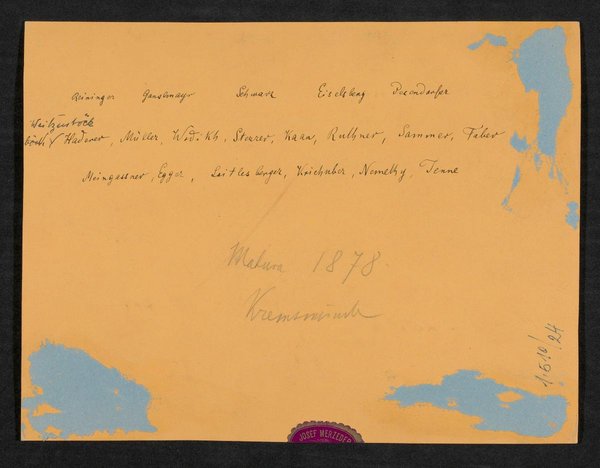 Reininger Ganslmayr Schwarz Eiselsberg Posendorfer
Weitzenböck
böck Haderer, Müller, Wodikh, Sterrer, Kaan, Ruthner, Sammer, Faber
Meingassner, Egger, Leitlesberger, Krichuber, Nemethy, Jenne
Matura 1878.
Kremsmünde
1510/24
JOSEF MERZEDER